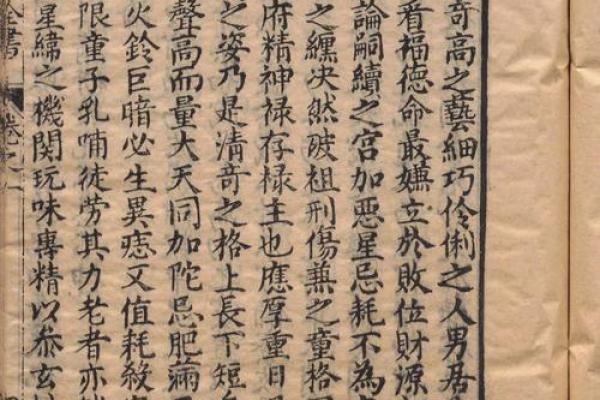 奇高之藝細巧伶俐之人男居
看福德命最嫌立於敗位財源
論嗣續之宮加惡星忌耗不為
之纏决然破祖刑傷兼之童格
府精神祿存祿主也應厚重日
之姿乃是清奇之格上長下短
聲高而量大天同加陀忌肥滿
火鈴巨暗必生異痣又值耗殺
限童子乳哺徒勞其力老者亦
星緯之機関玩味專精以叅玄
書